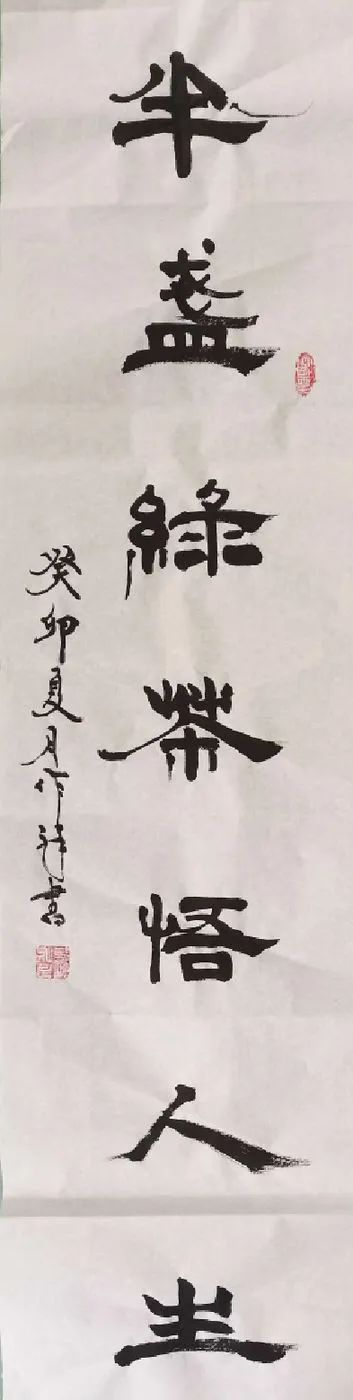 半盏綠茶悟人生
癸卯夏月作祥書